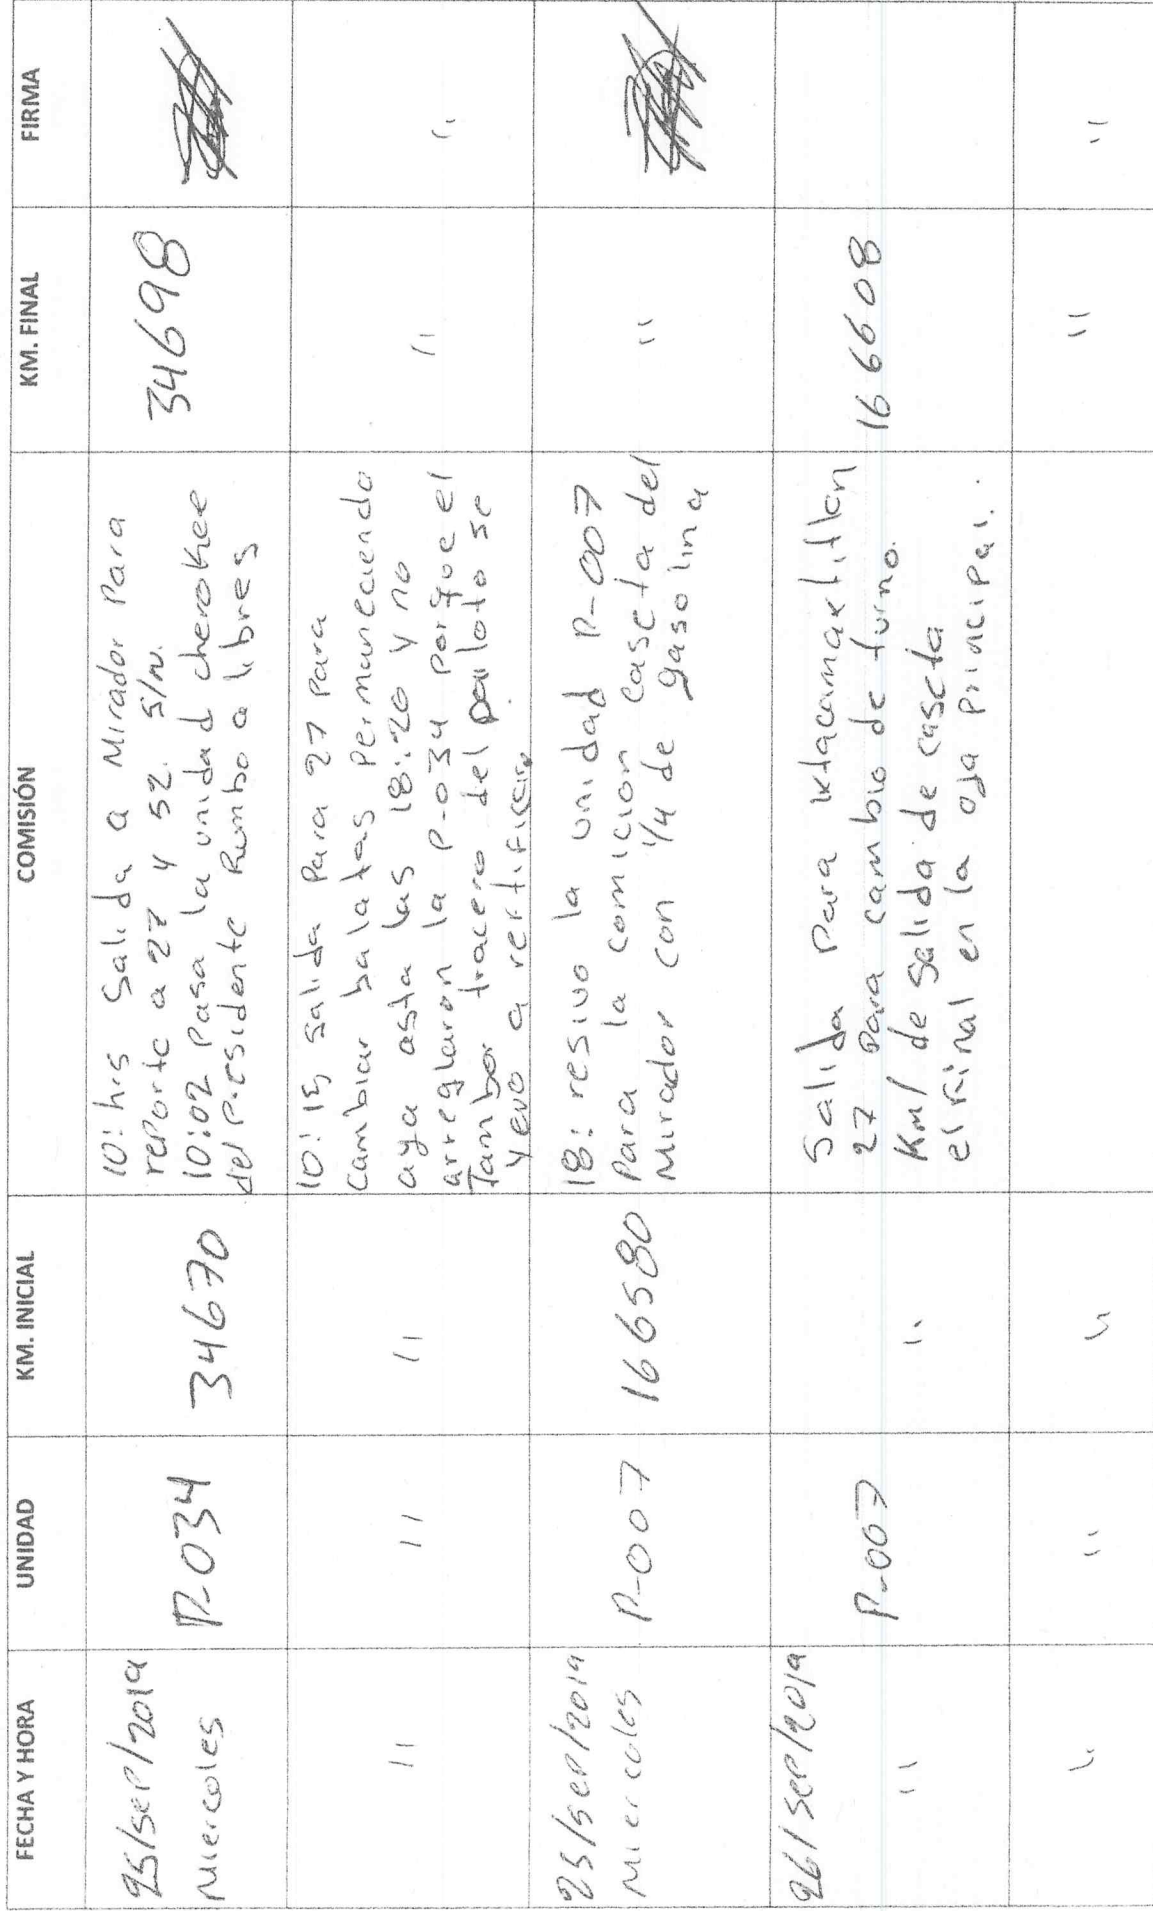 FECHA Y HORA
UNIDAD
KM. INICIAL
COMISIÓN
KM. FINAL
FIRMA
25/sep/2019
Miercoles
P-034
34670
10:hrs Salida a Mirador Para
rePorte a 27 y 52. S/N.
10:02 Pasa la unidad cherokee
del Presidente Rumbo a libres
34698
"
"
"
10:15 salida Para 27 Para
Cambiar balatas Permaneciendo
aya asta las 18:20 y no
arreglaron la P-034 Porque el
Tambor tracero del piloto se
yevo a rectificar
"
"
25/sep/2019
Miercoles
P-007
166580
18: resivo la unidad P-007
Para la comicion caseta del
Mirador con 1/4 de gasolina
"
26/sep/2019
"
P-007
"
Salida Para Ixtacamaxtitlan
27 Para cambio de turno.
Km/ de salida de caseta
el Final en la oja Principal.
166608
"
"
"
"
"